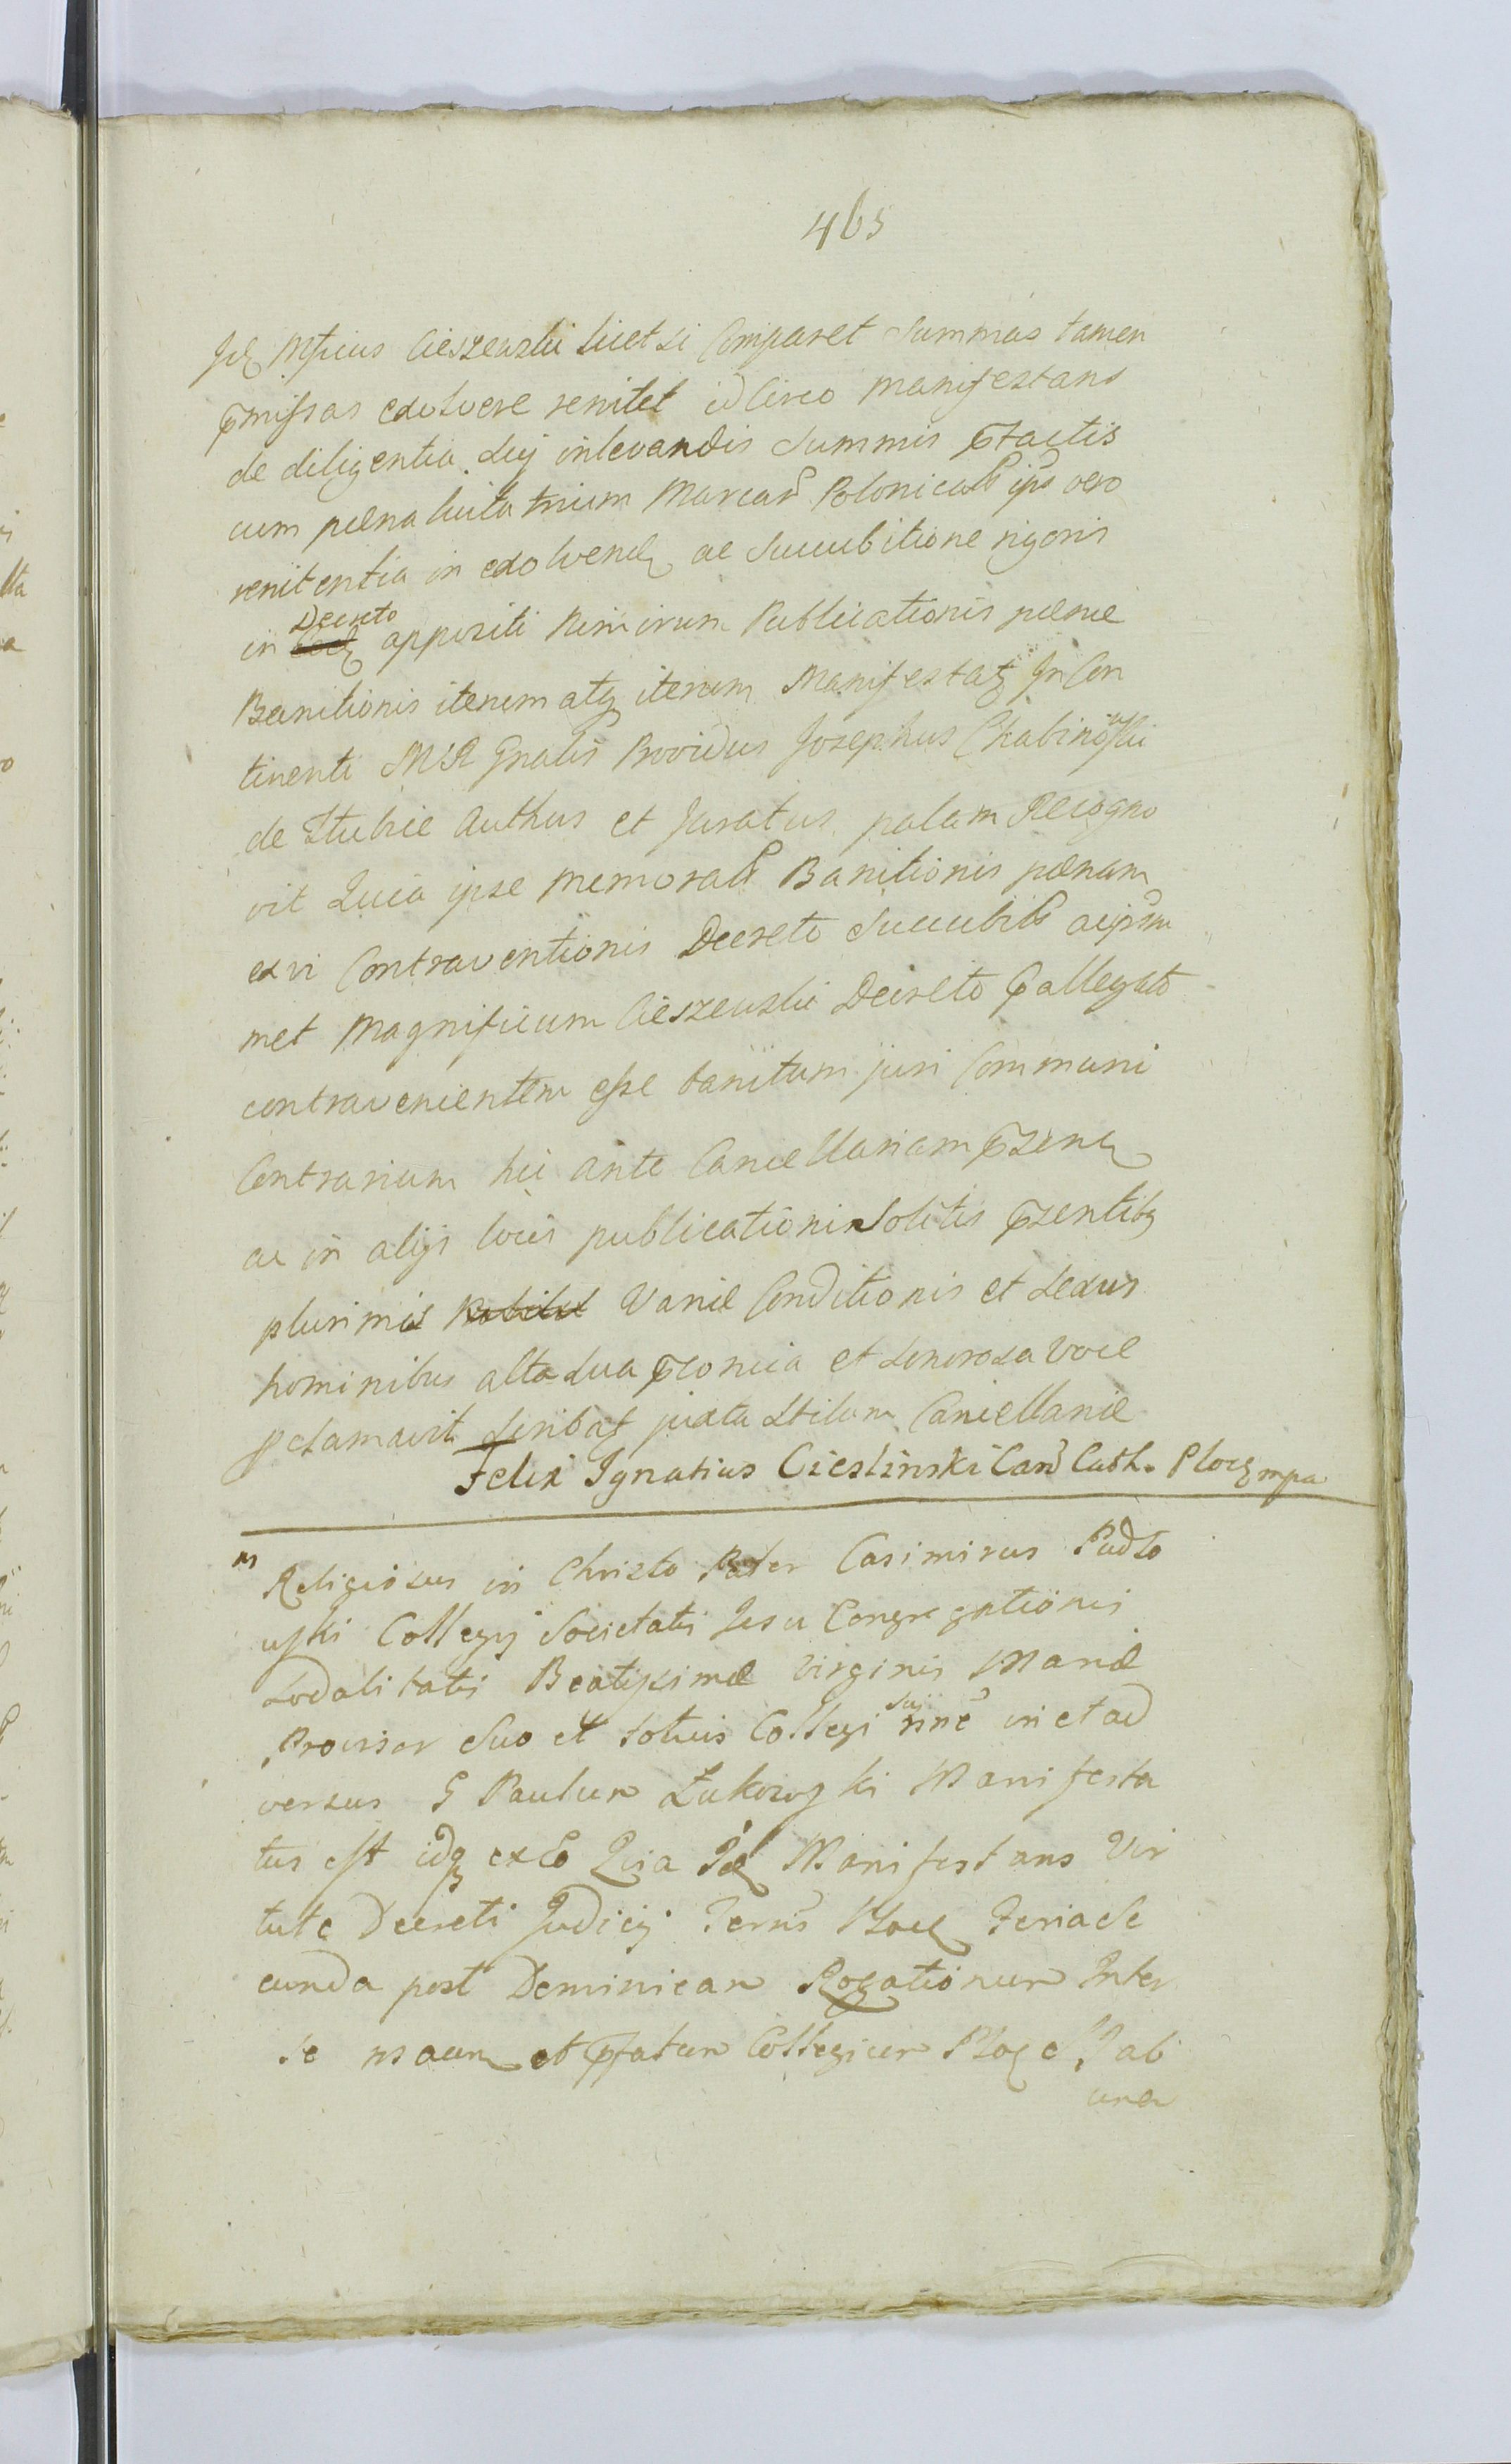 465
Mficus Cieszewski licet si Comparet Summas tamen
pmissas exolvere renitet idcirco Manifestans
de diligentia Sui in levandis Summis ptactis
cum pæna luita trium Marcar Polonicals ips vero
renitentia in exolvend ac Succubitione rigoris
Decreto
in appositi Nimirum Publicationis pœnæ
Banitionis iterum atq iterum Manifestat In Con
tinenti M R Gnalis Providus Josephus Chabinowski
de Authus et Juratus palam Recogno
vit Quia ipse Memorals Banitionis pœnam
ex vi Contraventionis Decreto Succubils
met Magnificum Cieszewski Decreto pallegato
contravenientem esse banitum juri Communi
Contrarium hic ante Cancellariam psen
ac in alijs locis publicationi Solitis psentibq
plurimis Variæ Conditionis et Sexus
hominibus alta sua et Sonorosa voce
pclamavit Scribat juxta Stilum Cancellariæ
Felix Ignatius Cieslinski Can Cath. Ploc mpa
M
Religiosus in Christo Pater Casimirus Padło
wski Collegij Societatis Jesu Congregationis
Sodalitatis Beatissimæ Virginis Mariæ
Provisor Suo et totius Collegi Sui nne in et ad
versus G Paulum Łukowski Manifesta
tus est idq ex eo Quia Manifestans Vir
tute Decreti Judicij Terris Ploc Feria Se
cunda post Dominicam Rogationum Inter
se et pfatum Collegium Ploc ab
una